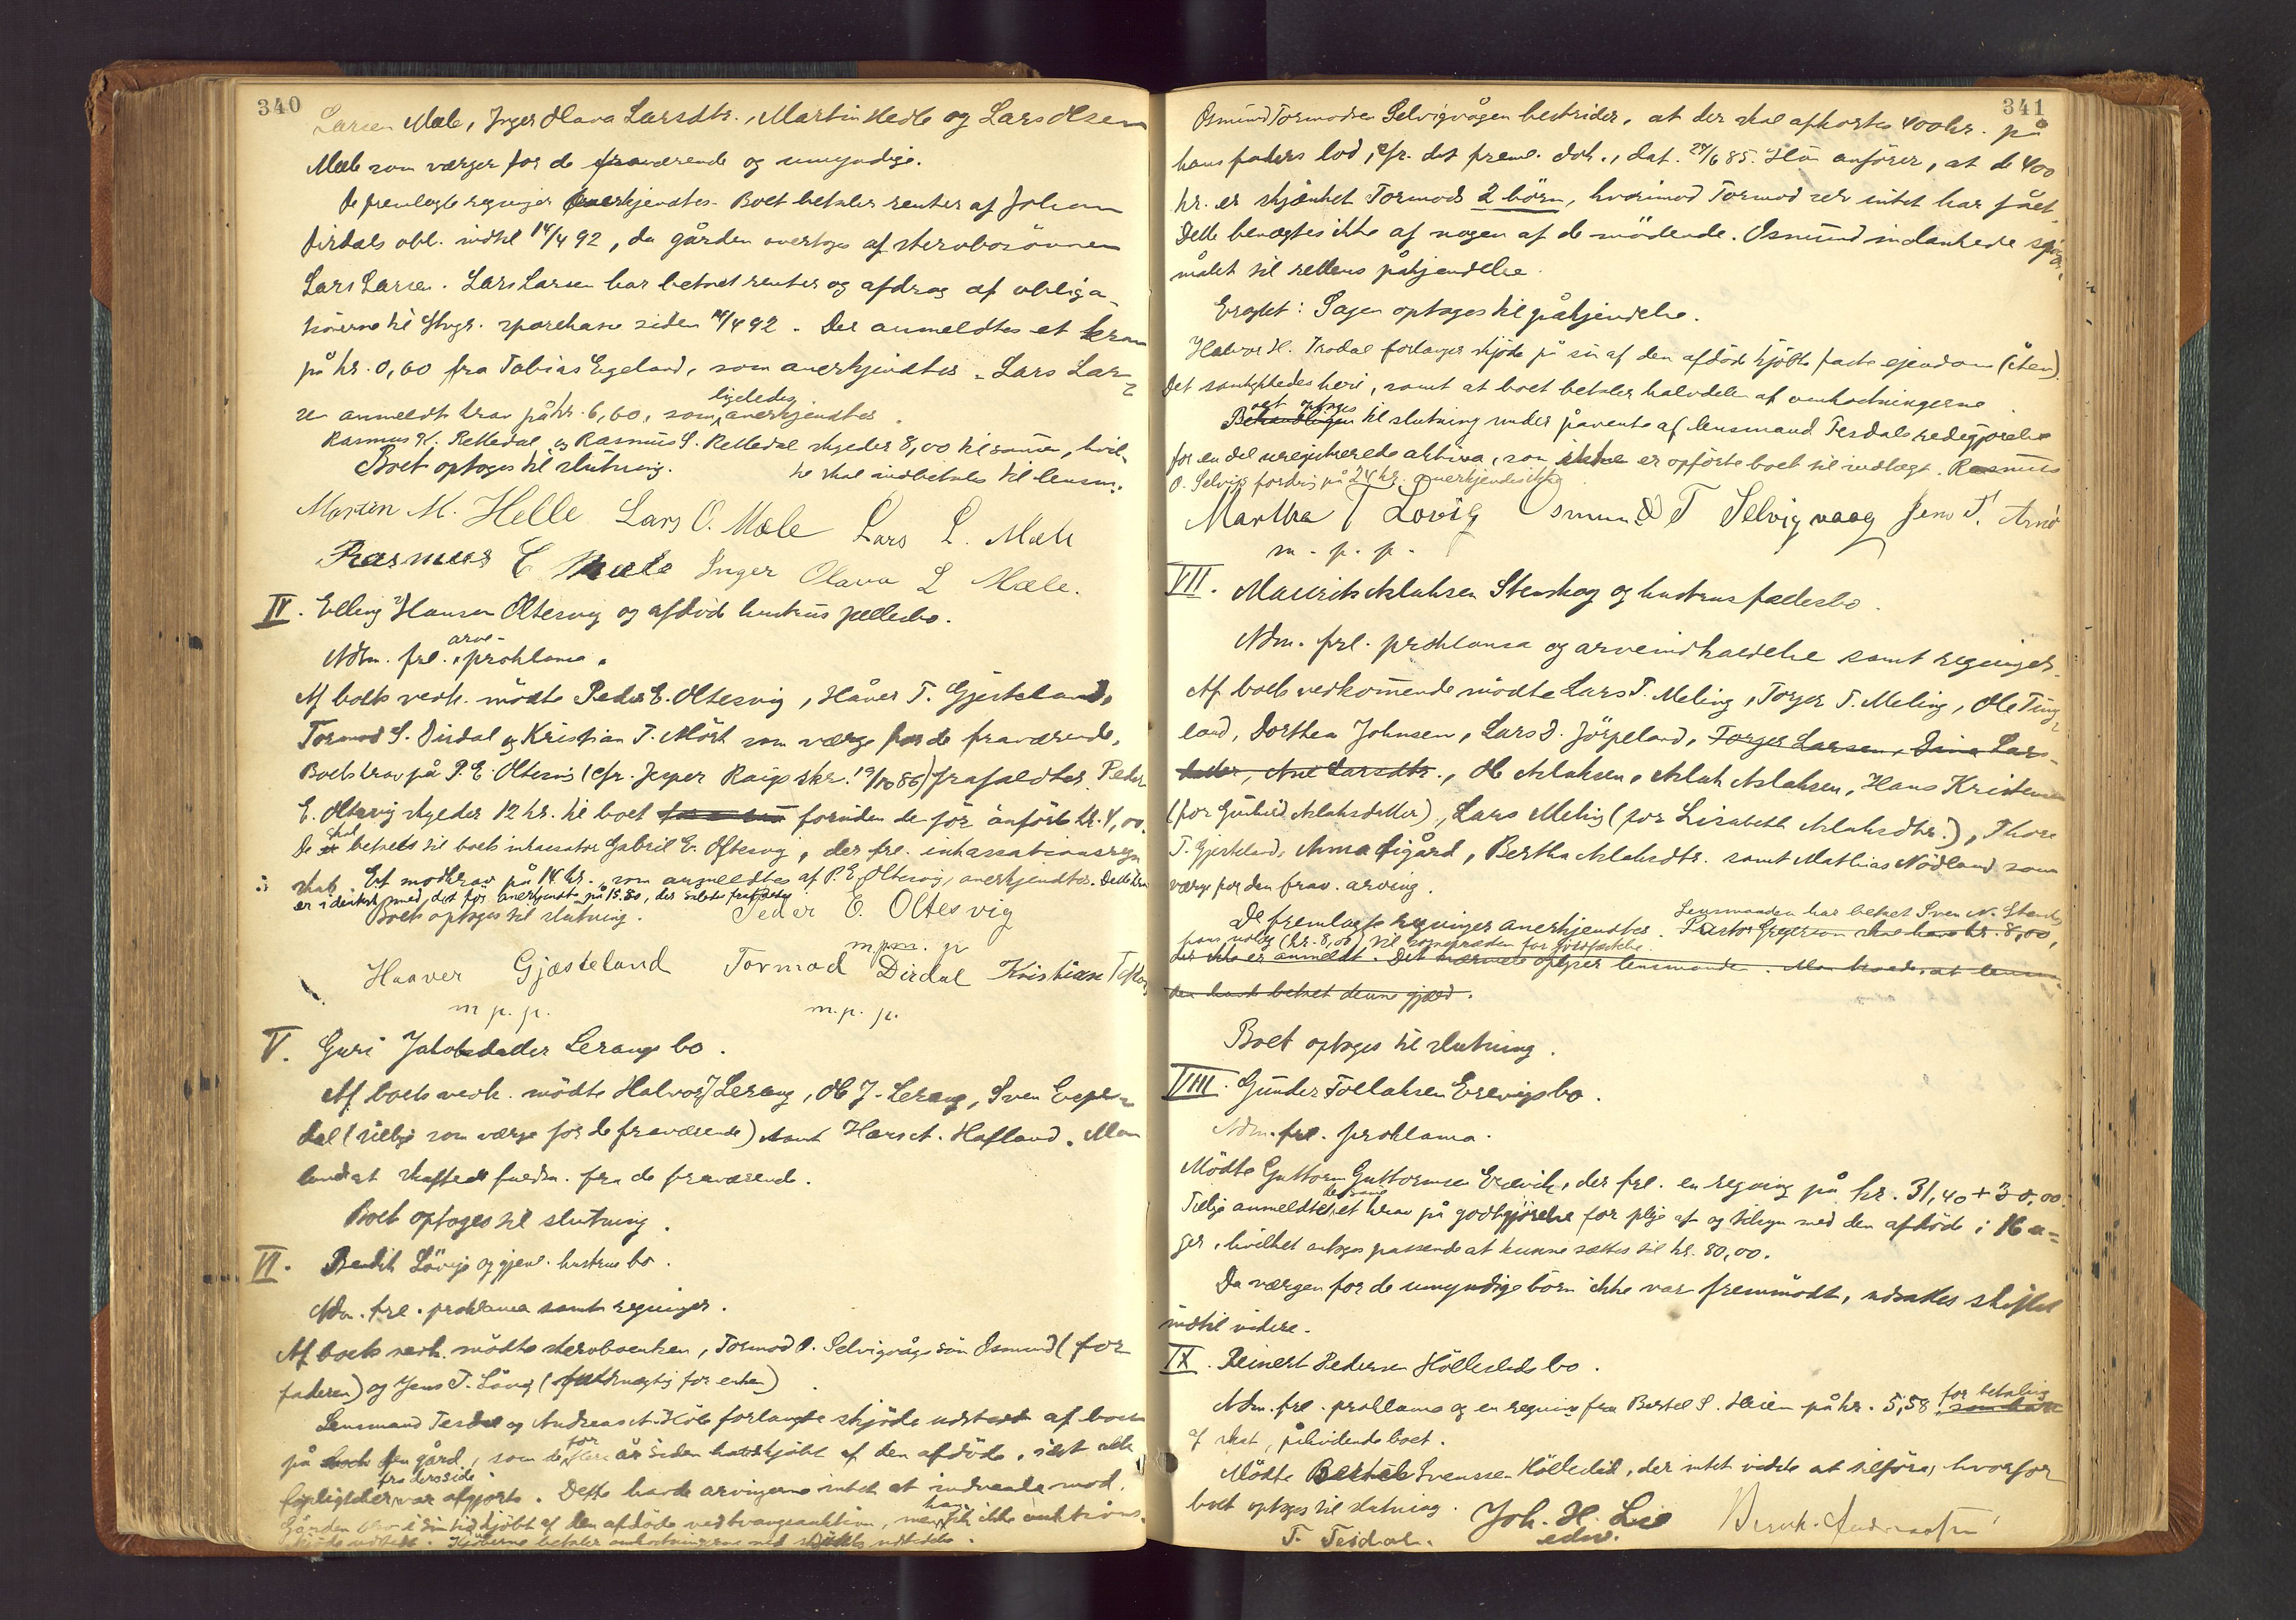 340
Larsen Mæle, Inger Olava Larsdtr., Martin Helle og Lars Olsen
Mæle som værger for de fraværende og umyndige.
De fremlagte regninger anerkjendtes. Boet betaler renter af Johan
Dirdals obl. indtil 14/4 92, da gården overtoges af stervbosönnen
Lars Larsen. Lars Larsen har betalt renter og afdrag af obliga-
tionerne til Stvgr. sparekasse siden 14/4 92. Der anmeldtes et krav
på kr. 0,60 fra Tobias Egeland, som anerkjendtes. Lars Lar-
sen anmeldte krav på kr. 6,60, som ligeledes anerkjendtes.
Rasmus K. Rettedal og Rasmus S. Rettedal skylder 8,00 tilsamen, hvil-
Boet optoges til slutning. ke skal indbetales til lensm.
Morten M. Helle Lars O. Mæle Lars L. Mæle
Rasmus Mæle Inger Olava L Mæle.
IV. Elling Hansen Oltesvig og afdöd hustrus fællesbo.
Adm. frl. arve-proklama.
Af boets vedk. mödte Peder E. Oltesvig, Håver T. Gjesteland,
Tormod S. Dirdal og Kristian T. som værge for de fraværende.
Boets krav på P. E. Oltesvig (cfr. Jesper skr. 19/10 86) frafaldtes. Peder
E. Oltesvig skylder 12 kr. til boet foruden de för anförte kr. 4,00.
De skal betales til boets inkassator Gabriel E. Oltesvig, der frl. inkassationsregn-
skab. Et modkrav på 14 kr., som anmeldtes af P. E. Oltesvig, anerkjendtes. Dette krav
er identisk med det för anerkjendte på 15.80, der således frafaldes
Boet optoges til slutning. Peder E. Oltesvig
m.p.p.
Haaver Gjæsteland Tormod Dirdal Kristian T
m.p.p. m.p.p.
V. Guri Jakobsdatter Lerangs bo.
Af boets vedk. mödte Halvor J Lerang, Ole J. Lerang, Sven Espe-
dal (tillige som værge for de fraværende) samt Hans A. Hafland. Man
lovet at skaffe fuldm. fra de fraværende.
Boet optoges til slutning.
VI. Bendik Lövigs og gjenl. hustrus bo.
Adm. frl. proklama samt regninger.
Af boets vedk. mödte stervboenken, Tormod O. Selvigvågs sön Osmund (for
faderen) og Jens T. Lövig (fuldmægtig for enken)
Lensmand Tesdal og Andreas A. Hole forlangte skjöde udstedt af boet
på den gård, som de for flere år siden havde kjöbt af den afdöde, idet alle
forpligtelser fra deres side var afgjorte. Dette havde arvingerne intet at indvende mod.
Gården blev i sin tid kjöbt af den afdöde ved tvangsauktion, men han fik ikke auktions-
skjöde udstedt. Kjöberne betaler omkostningerne ved skjödets udstedelse.
341
Osmund Tormodsen Selvigvågen bestrider, at der skal afkortes 400 kr. på
hans faders lod, cfr. det freml. dok., dat. 24/6 85. Han anförer, at de 400
kr. er skjænket Tormods 2 börn, hvorimod Tormod selv intet har fået.
Dette benægtes ikke af nogen af de mödende. Osmund indankede spörgs-
målet til rettens påkjendelse.
Eragtet: Sagen optoges til påkjendelse.
Halvor H. forlanger skjöde på sin af den afdöde kjöbte faste ejendom (
Det samtykkedes heri, samt at boet betaler halvdelen af omkostningerne.
Boet optoges til slutning under påvente af lensmand Tesdals redegjörelse
for en del uregistrerede aktiva, som ikke er opförte boet til indtægt. Rasmus
O. Selvigs fordring på 24 kr. anerkjendes ikke
Martha T Lövig Osmund T Selvigvaag Jens T.
m. p. p.
VII. Maurits Aslaksen Stenskog og hustrus fællesbo.
Adm. frl. proklama og arveindkaldelse samt regninger.
Af boets vedkommende mödte Lars T. Meling, Torger T. Meling, Ole Ting-
land, Dorthea Johnsen, Lars D. Jörpeland, Torger Larsen, Lars-
datter, Larsdtr., Ole Aslaksen, Aslak Aslaksen, Hans Kristensen
(for Gunhild Aslaksdatter), Lars Meling (for Lisabeth Aslaksdtr.), Thore
T. Gjesteland, Anna Eigård, Bertha Aslaksdtr. samt Mathias Nödland som
værge for den frav. arving.
De fremlagte regninger anerkjendtes. Lensmanden har betalt Sven N. Stens-
Pastor Gregersen skal have kr. 8,00,
der ikke er anmeldt. Det nærmere oplyser lensmanden. Man troede, at lensm-
den havde betalt denne gjæld.
Boet optoges til slutning.
VIII. Gunder Tollaksen Erevigs bo.
Adm. frl. proklama.
Mödte Guttorm Guttormsen Erevik, der frl. en regning på kr. 31,40 + 30,00.
Tillige anmeldte et krav på godtgjörelse for pleje af og tilsyn med den afdöde i 16 a-
ger, hvilket antoges passende at kunne sættes til kr. 80,00.
Da værgen for de umyndige börn ikke var fremmödt, udsattes skiftet
indtil videre.
IX. Reinert Pedersen Höllesleds bo.
Adm. frl. proklama og en regning fra Bertel S. Heien på kr. 5,58 for betaling
af skat, påhvilende boet.
Mödte Bertel Svenssen Hölleslid, der intet vidste at tilföre, hvorfor
boet optoges til slutning. Joh. H. Lie
T. Tesdal. edsv.